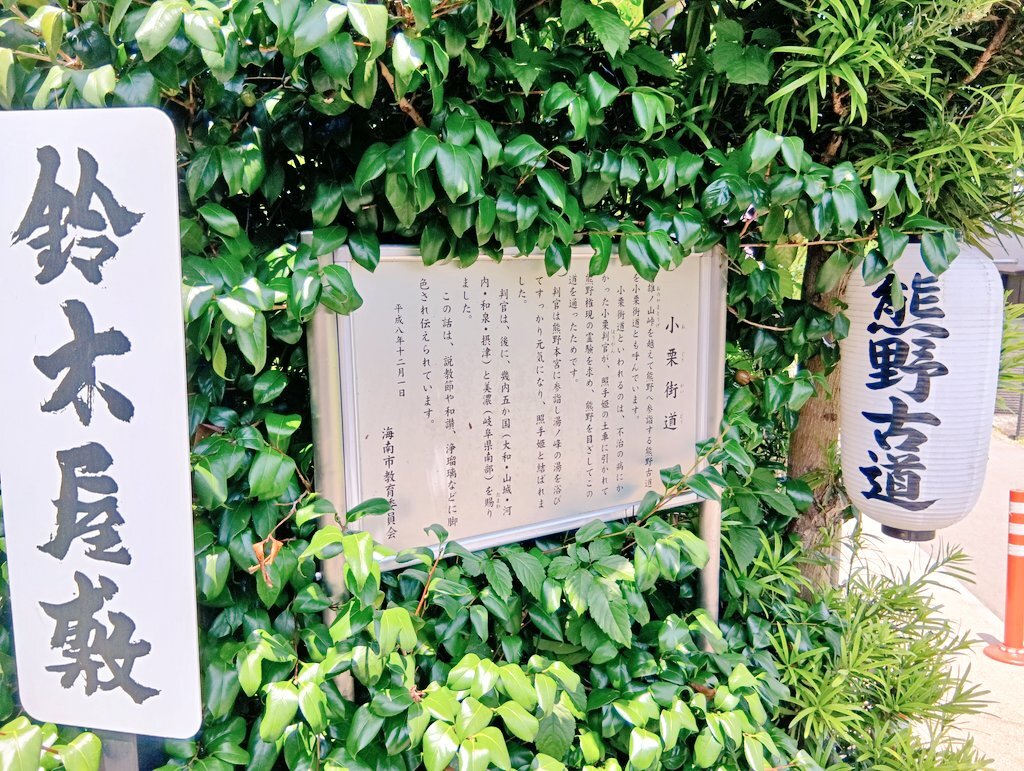 熊野古道
小栗街道
雄ノ山峠を越えて熊野へ参詣する熊野古道
を小栗街道とも呼んでいます。
小栗街道といわれるのは、不治の病にか
かった小栗判官が、照手姫の土車に引かれて
熊野権現の霊験を求め、熊野を目ざしてこの
道を通ったためです。
判官は熊野本宮に参詣し湯ノ峰の湯を浴び
てすっかり元気になり、照手姫と結ばれま
した。
判官は、後に、畿内五か国（大和・山城・河
内・和泉・摂津）と美濃（岐阜県南部）を賜り
ました。
この話は、説教節や和讃、浄瑠璃などに脚
色され伝えられています。
平成八年十二月一日
海南市教育委員会
鈴木屋敷